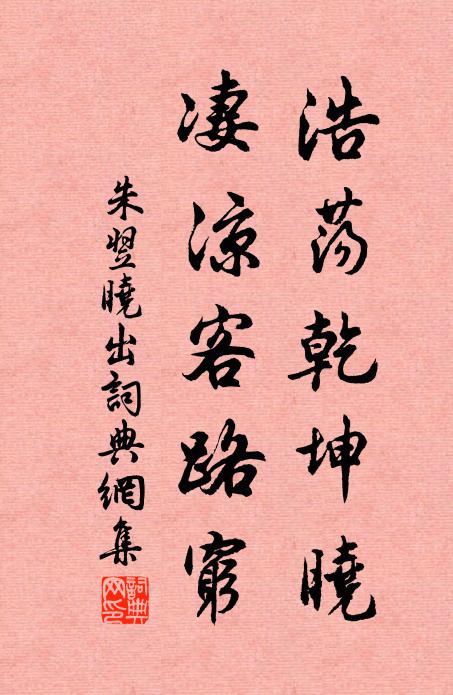 浩荡乾坤曉
凄涼客路窮
朱翌曉出詞典網集
詞典網印